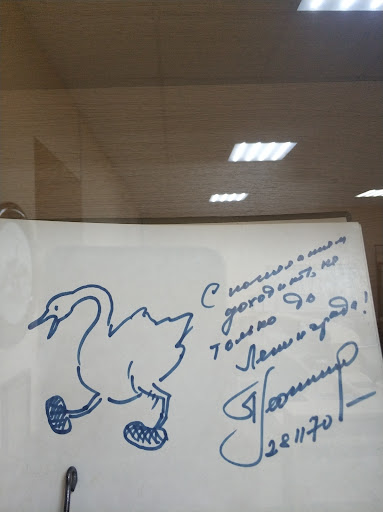 С пожеланием
доходить не
только до
Ленинграда!
281170